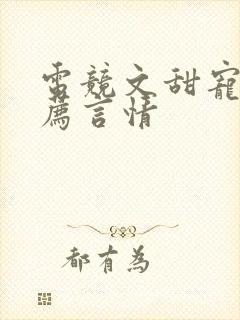 電競文甜寵
薦言情
都有為